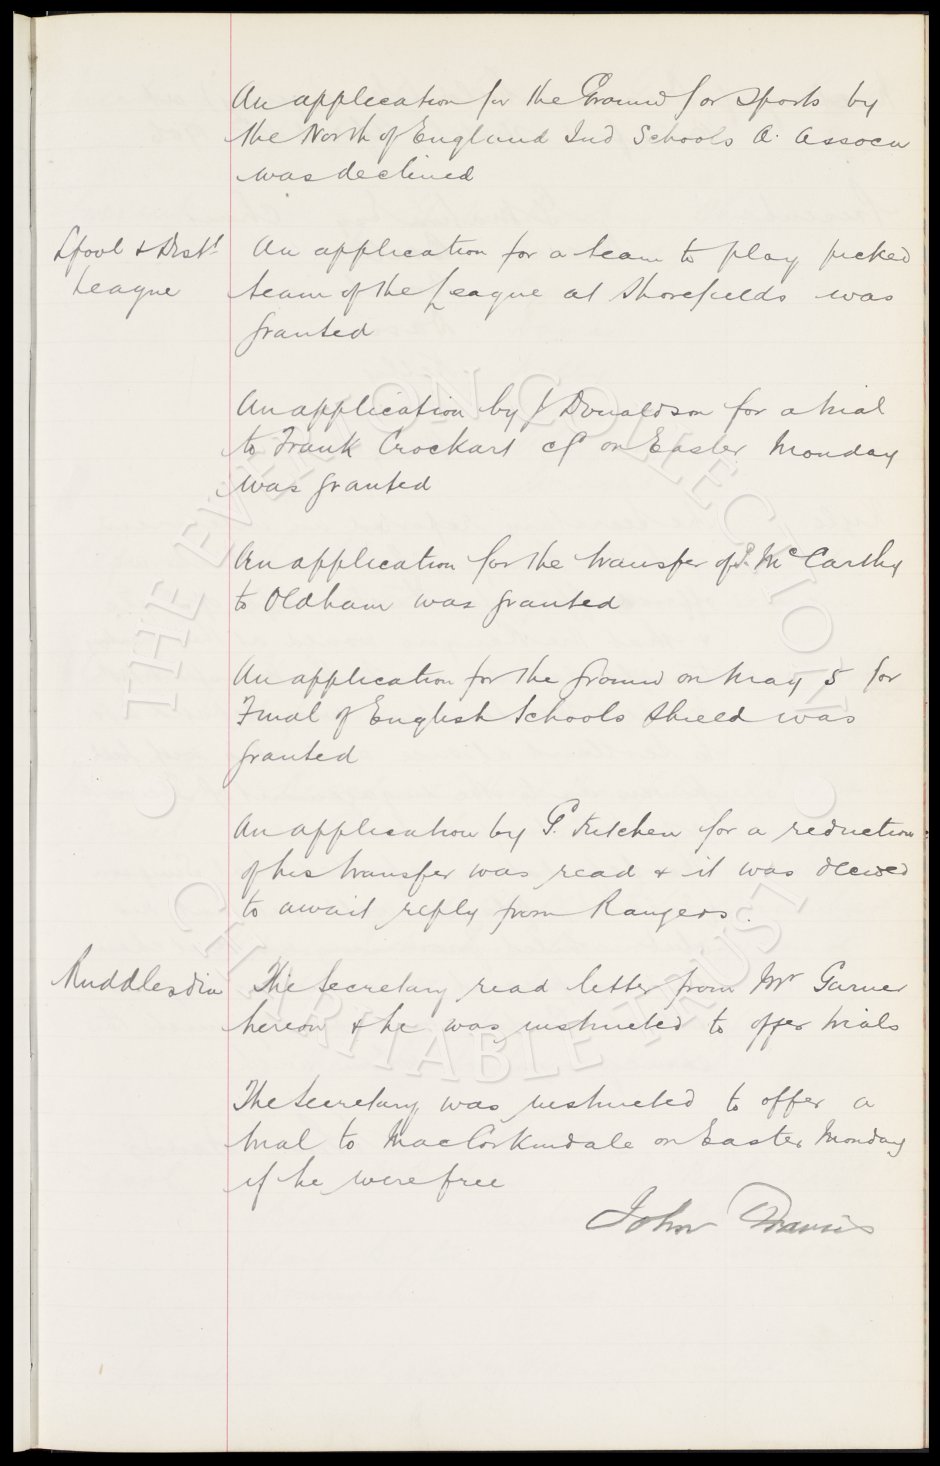 An application for the Ground for Sports by
the North of England Ind Schools A. Assocn
was declined
Lpool & Dist
League
An application for a team to play picked
team of the League at Shorefields was
granted
An application by J Donaldson for a trial
to Frank Crockart cf on Easter Monday
was granted
An application for the transfer of P. McCarthy
to Oldham was granted
An application for the ground on May 5 for
Final of English Schools Shield was
granted
An application by G. Kitchen for a reduction
of his transfer was read & it was decided
to await reply from Rangers.
Ruddlesdin
The Secretary read letter from Mr Garner
hereon & he was instructed to offer trials
The Secretary was instructed to offer a
trial to MacCorkindale on Easter Monday
if he were free
John
THE EVERTON COLLECTION
CHARITABLE TRUST